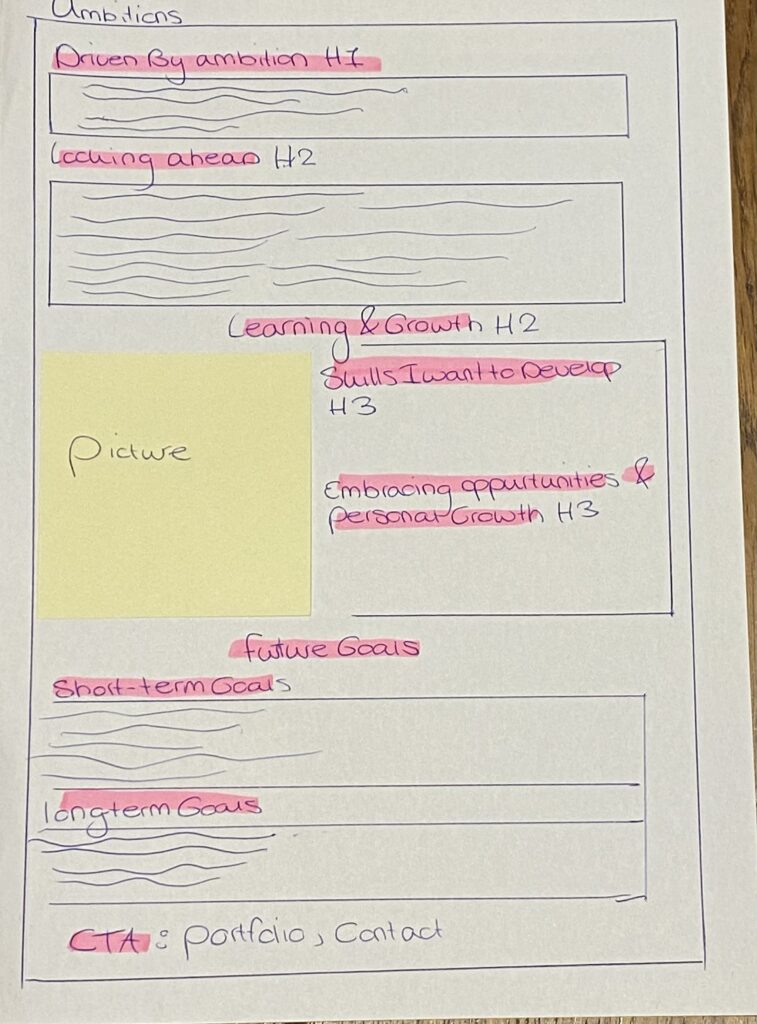 Ambitions
Driven By ambition H1
Looking ahead H2
Learning & Growth H2
Skills I want to Develop
H3
Picture
Embracing oppurtunities &
personal Growth H3
Future Goals
Short-term Goals
longterm Goals
CTA : portfolio, Contact